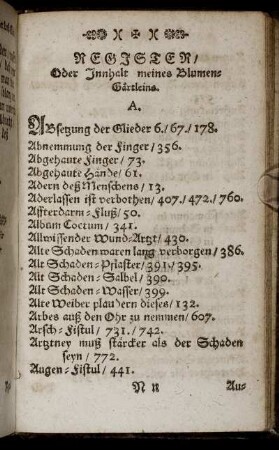 REGISTER/
Oder Jnnhalt meines Blumen-
Gärtleins.
A.
ABsetzung der Glieder 6./67./178.
Abnemmung der Finger/356.
Abgehaute Finger/73.
Abgehaute Hände/61.
Adern deß Menschens/13.
Aderlassen ist verbothen/407./472./760.
Affterdarm-Fluß/50.
Album Coctum/341.
Allwissender Wund-Artzt/430.
Alte Schaden waren lang verborgen/386.
Alt Schaden-Pflaster/391./395.
Alt Schaden-Salbel/390.
Alt Schaden-Wasser/399.
Alte Weiber plaudern dieses/132.
Arbes auß den Ohr zu nemmen/607.
Arsch-Fistul/731./742.
Artztney muß stärcker als der Schaden
seyn/772.
Augen-Fistul/441.
N n Au-